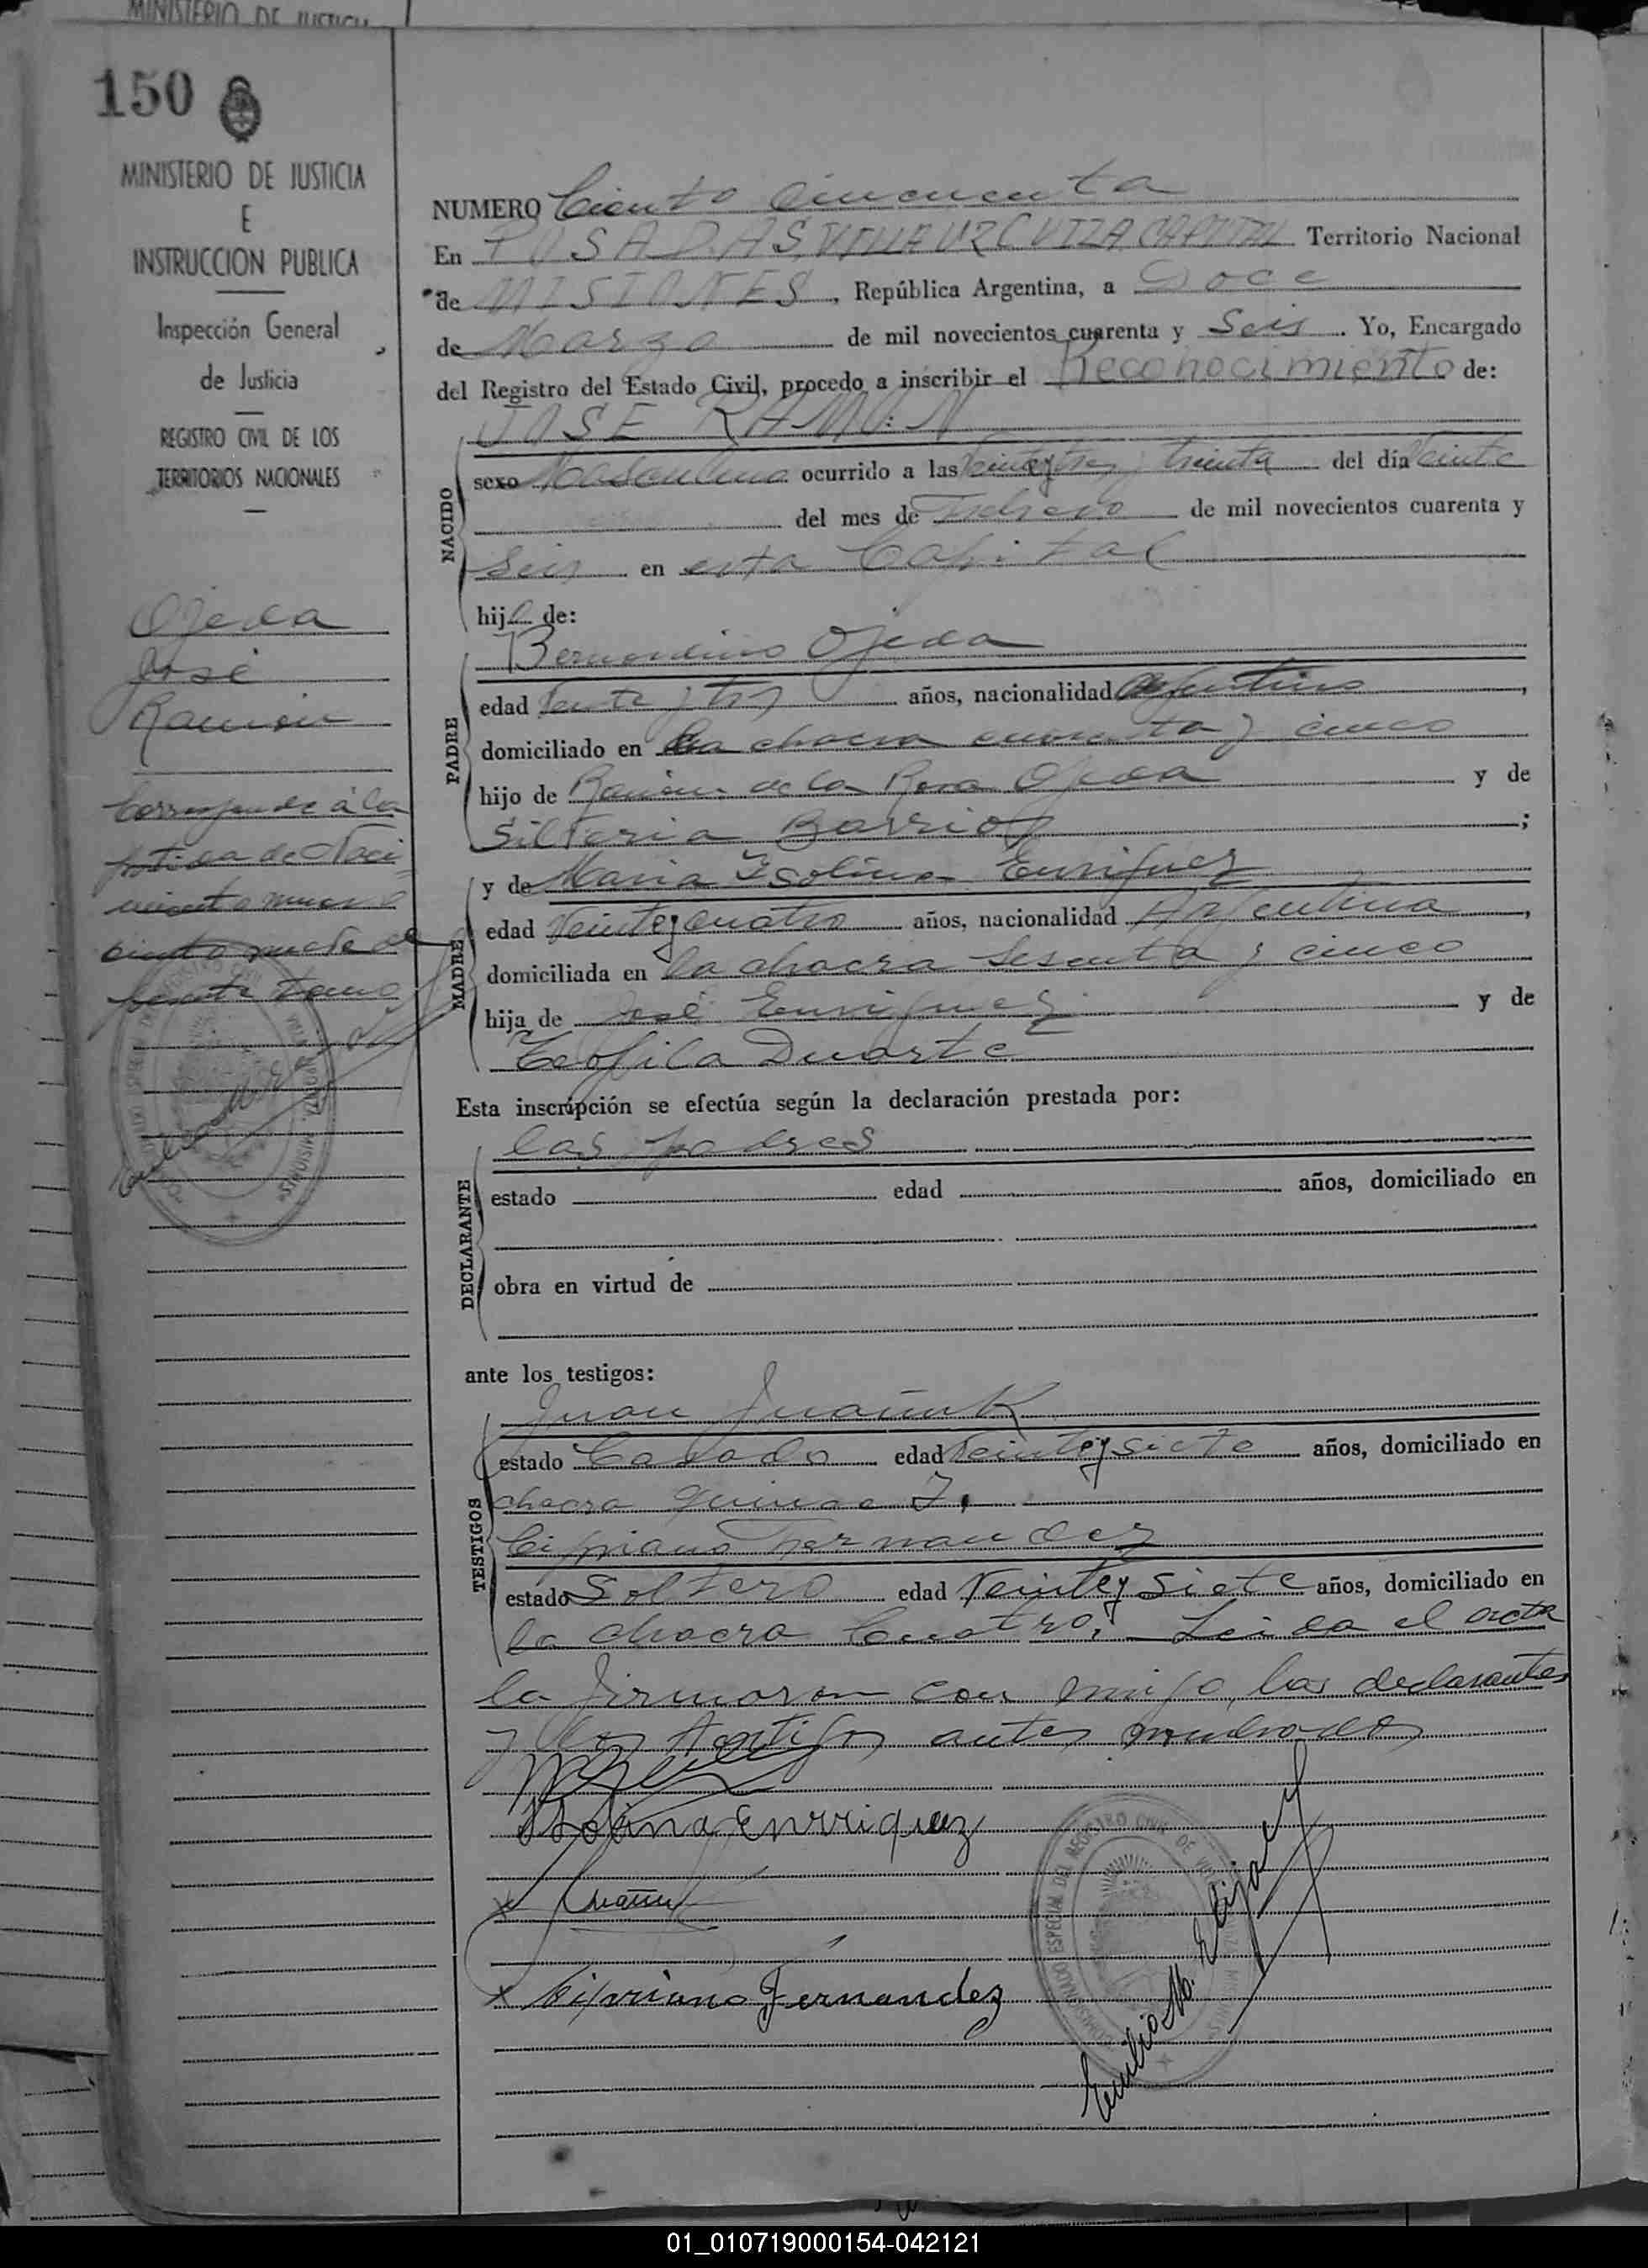 MINISTERIO DE JUSTICIA
150
MINISTERIO DE JUSTICIA
E
INSTRUCCION PUBLICA
Inspección General
de Justicia
REGISTRO CIVIL DE LOS
TERRITORIOS NACIONALES
Ojeda
José
Ramón
Corresponde á la
de Naci
ciento nueve de
NUMERO Ciento Cincuenta
En POSADAS, VILLA URCUIZA CAPITAL Territorio Nacional
de MISIONES, República Argentina, a Doce
de Marzo de mil novecientos cuarenta y Seis. Yo, Encargado
del Registro del Estado Civil, procedo a inscribir el Reconocimiento de:
JOSE RAMON
NACIDO
sexo Masculino ocurrido a las Veinteytres y treinta del día Veinte
del mes de Febrero de mil novecientos cuarenta y
Seis en esta Capital
hijo de:
PADRE
Bernardino Ojeda
edad y tres años, nacionalidad Argentino,
domiciliado en la chacra cuarenta y cinco
hijo de Ramón de la Rosa Ojeda y de
Silveria Barrios;
MADRE
y de Maria Isolina Enriquez
edad Veinteycuatro años, nacionalidad Argentina,
domiciliada en la chacra Sesenta y cinco
hija de José Enriquez y de
Teofila Duarte
Esta inscripción se efectúa según la declaración prestada por:
DECLARANTE
los padres
estado edad años, domiciliado en
obra en virtud de
ante los testigos:
TESTIGOS
Juan
estado Casado edad Veinteysiete años, domiciliado en
chacra quince
Cipriano Fernandez
estado Soltero edad Veinteysiete años, domiciliado en
la chacra Cuatro. Leida el acta
la firmaron con migo, los declarantes
y los testigos antes nombrados
Isolina Enrriquez
x
x Cipriano Fernandez
COMISIONADO ESPECIAL DEL REGISTRO CIVIL DE
Emilio M.
01_010719000154-042121